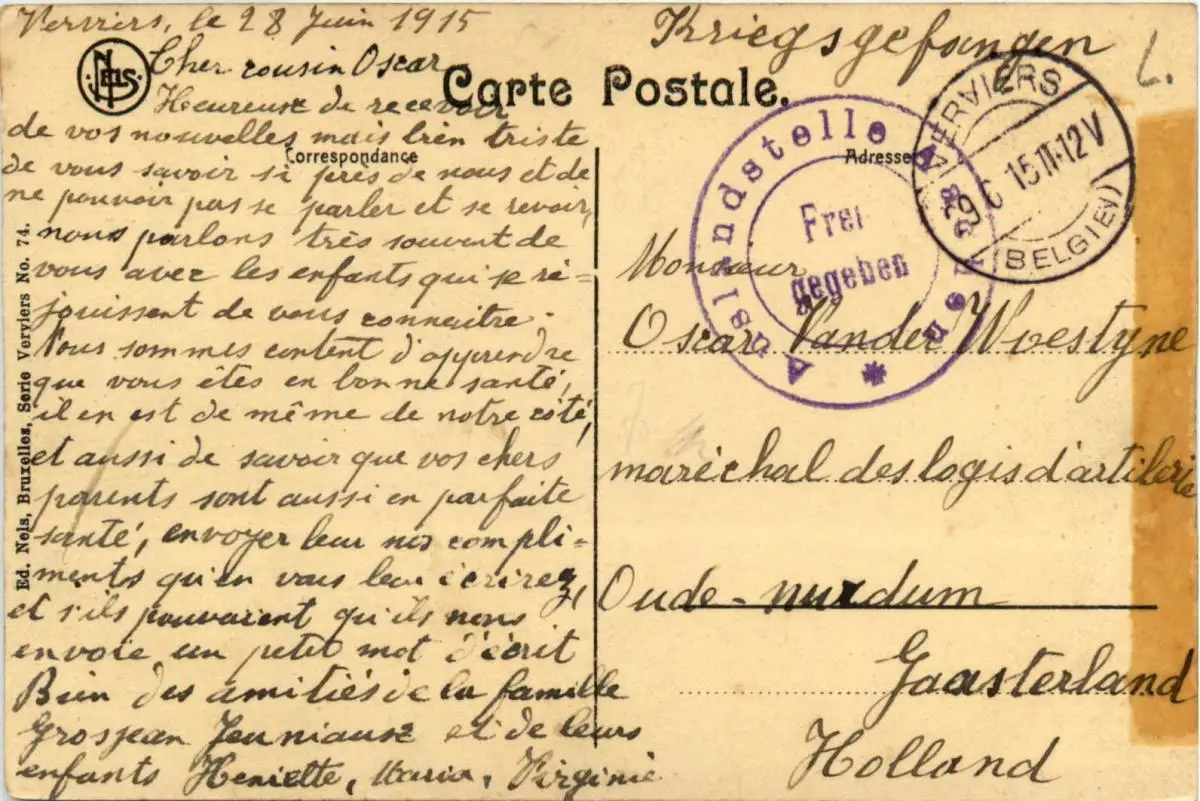 Verviers, le 28 Juin 1915
Cher cousin Oscar
Heureuse de recevoir
de vos nouvelles mais bien triste
de vous savoir si près de nous et de
ne pouvoir pas se parler et se revoir,
nous parlons très souvent de
vous avec les enfants qui se ré=
jouissent de vous connaitre.
Nous sommes content d'apprendre
que vous êtes en bonne santé,
il en est de même de notre côté,
et aussi de savoir que vos chers
parents sont aussi en parfaite
santé, envoyer leur nos compli-
ments qu'en vous leur écrirez,
et s'ils pouvaient qu'ils nous
envoie un petit mot d'écrit
Bien des amitiés de la famille
Grosjean Jeuniaux et de leurs
enfants Henriette, Maria, Virginie
Kriegsgefangen
L.
NELS
Carte Postale.
Correspondance
Adresse
Auslandstelle Aachen *
Frei
gegeben
VERVIERS
29 6 15 11-12V
(BELGIEN)
Monsieur
Oscar Vander Woestyne
maréchal des logis d'artilerie
Oude-nurdum
Gaasterland
Holland
Ed. Nels, Bruxelles, Serie Verviers No. 74.